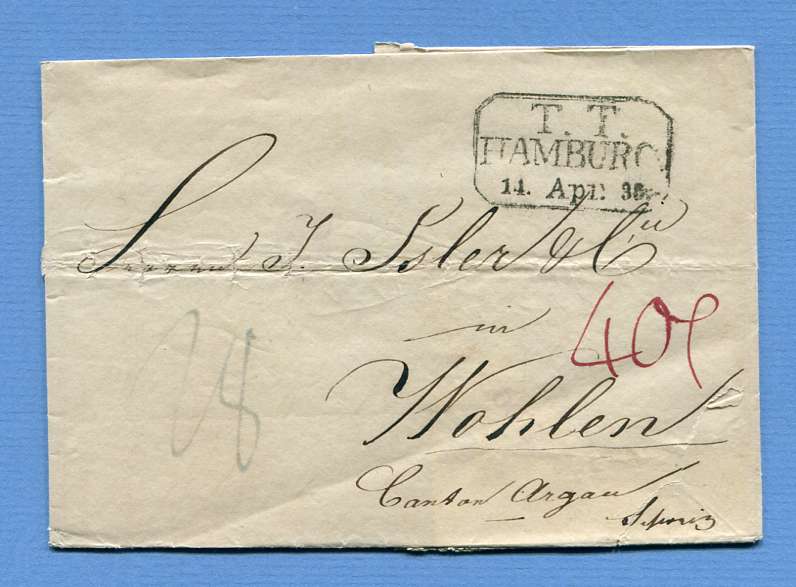 T. T.
HAMBURG.
11. Apr. 36.
Herren J. Isler & Cie
in
40
Wohlen
28
Canton Argau
Schweiz